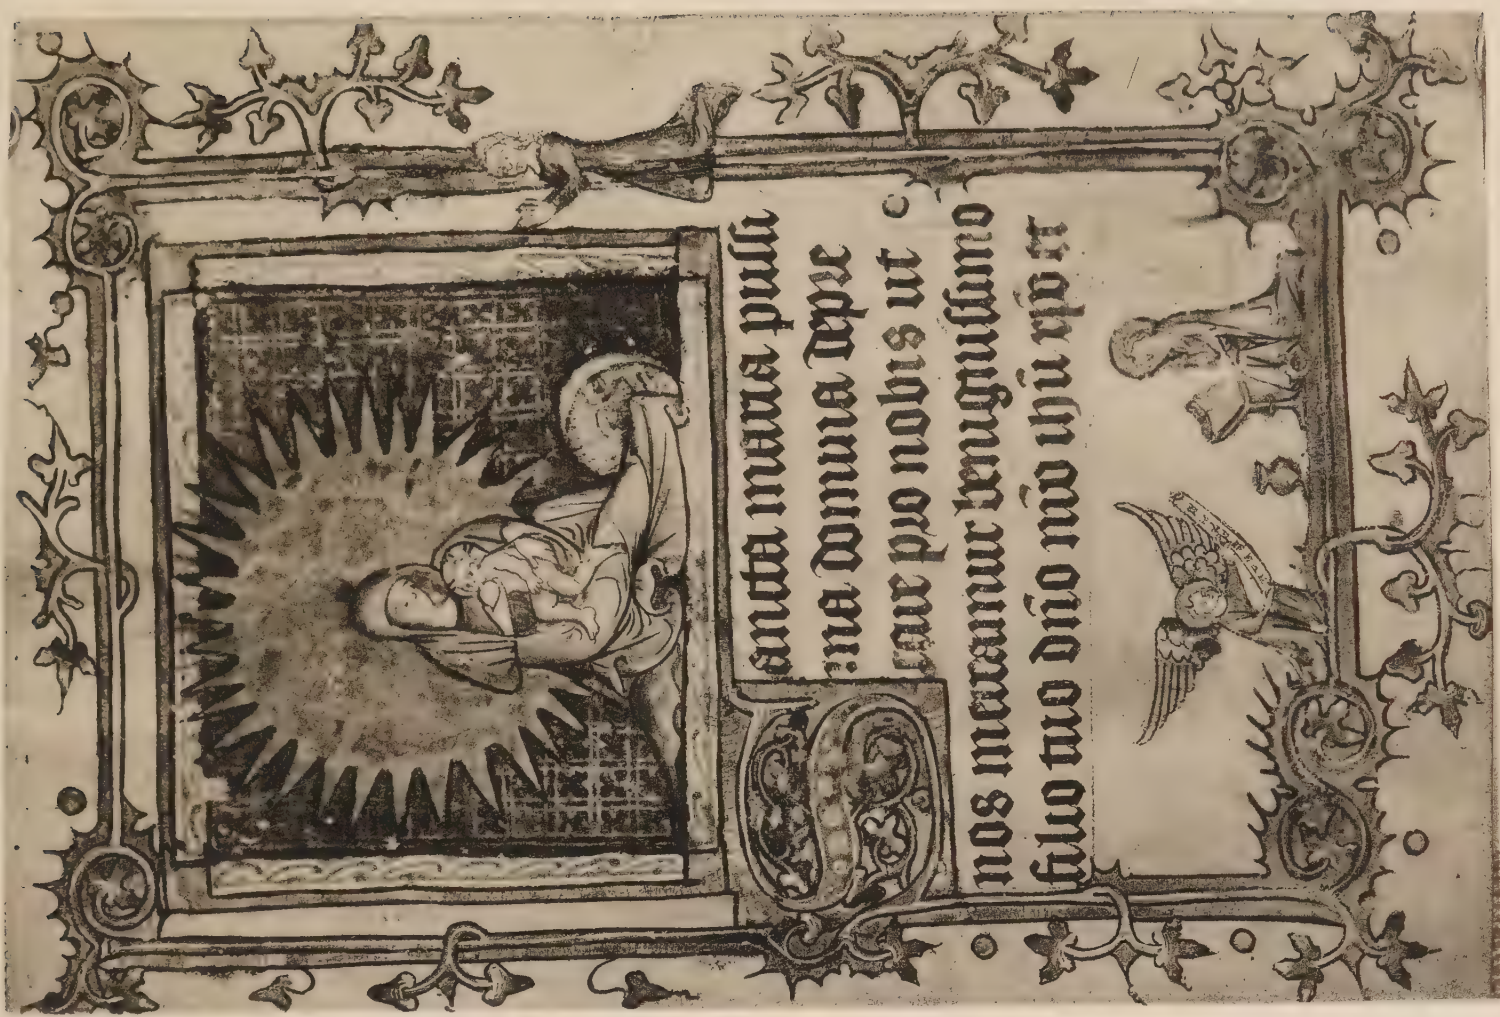 Sancta maria piissi
ma domina depre
care pro nobis ut
nos mereamur benignissimo
filio tuo dn̄o nr̄o ih̄u xp̄o et